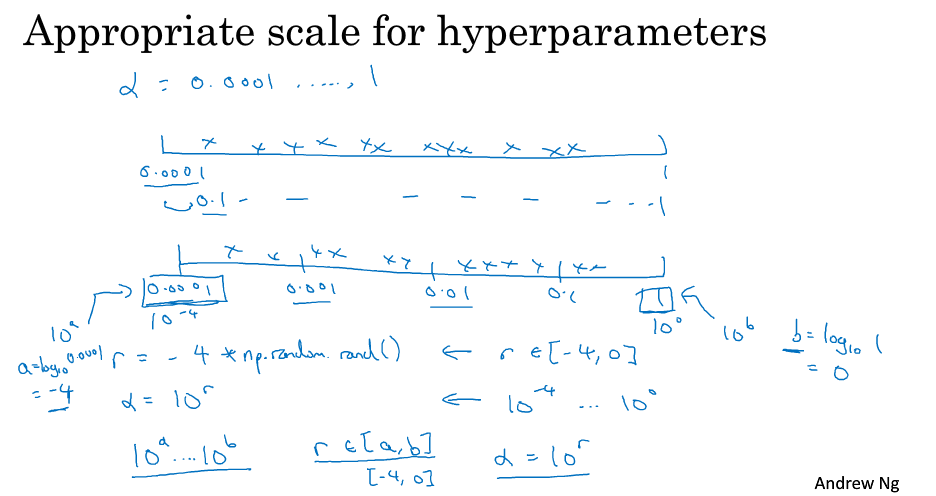 Appropriate scale for hyperparameters
α = 0.0001 ....., 1
0.0001 1
0.1 - - - - - - ...1
0.0001 0.001 0.01 0.1 1
10^-4 10^0
10^a 10^b b = log₁₀ 1
= 0
a=log₁₀ 0.0001
= -4
r = - 4 * np.random.rand() ← r ∈ [-4, 0]
α = 10^r ← 10^-4 ... 10^0
10^a .... 10^b r ∈ [a, b] α = 10^r
[-4, 0]
Andrew Ng